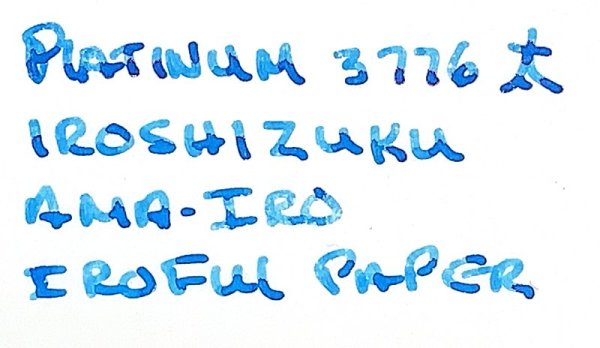 PLATINUM 3776 太
IROSHIZUKU
AMA-IRO
IROFUL PAPER